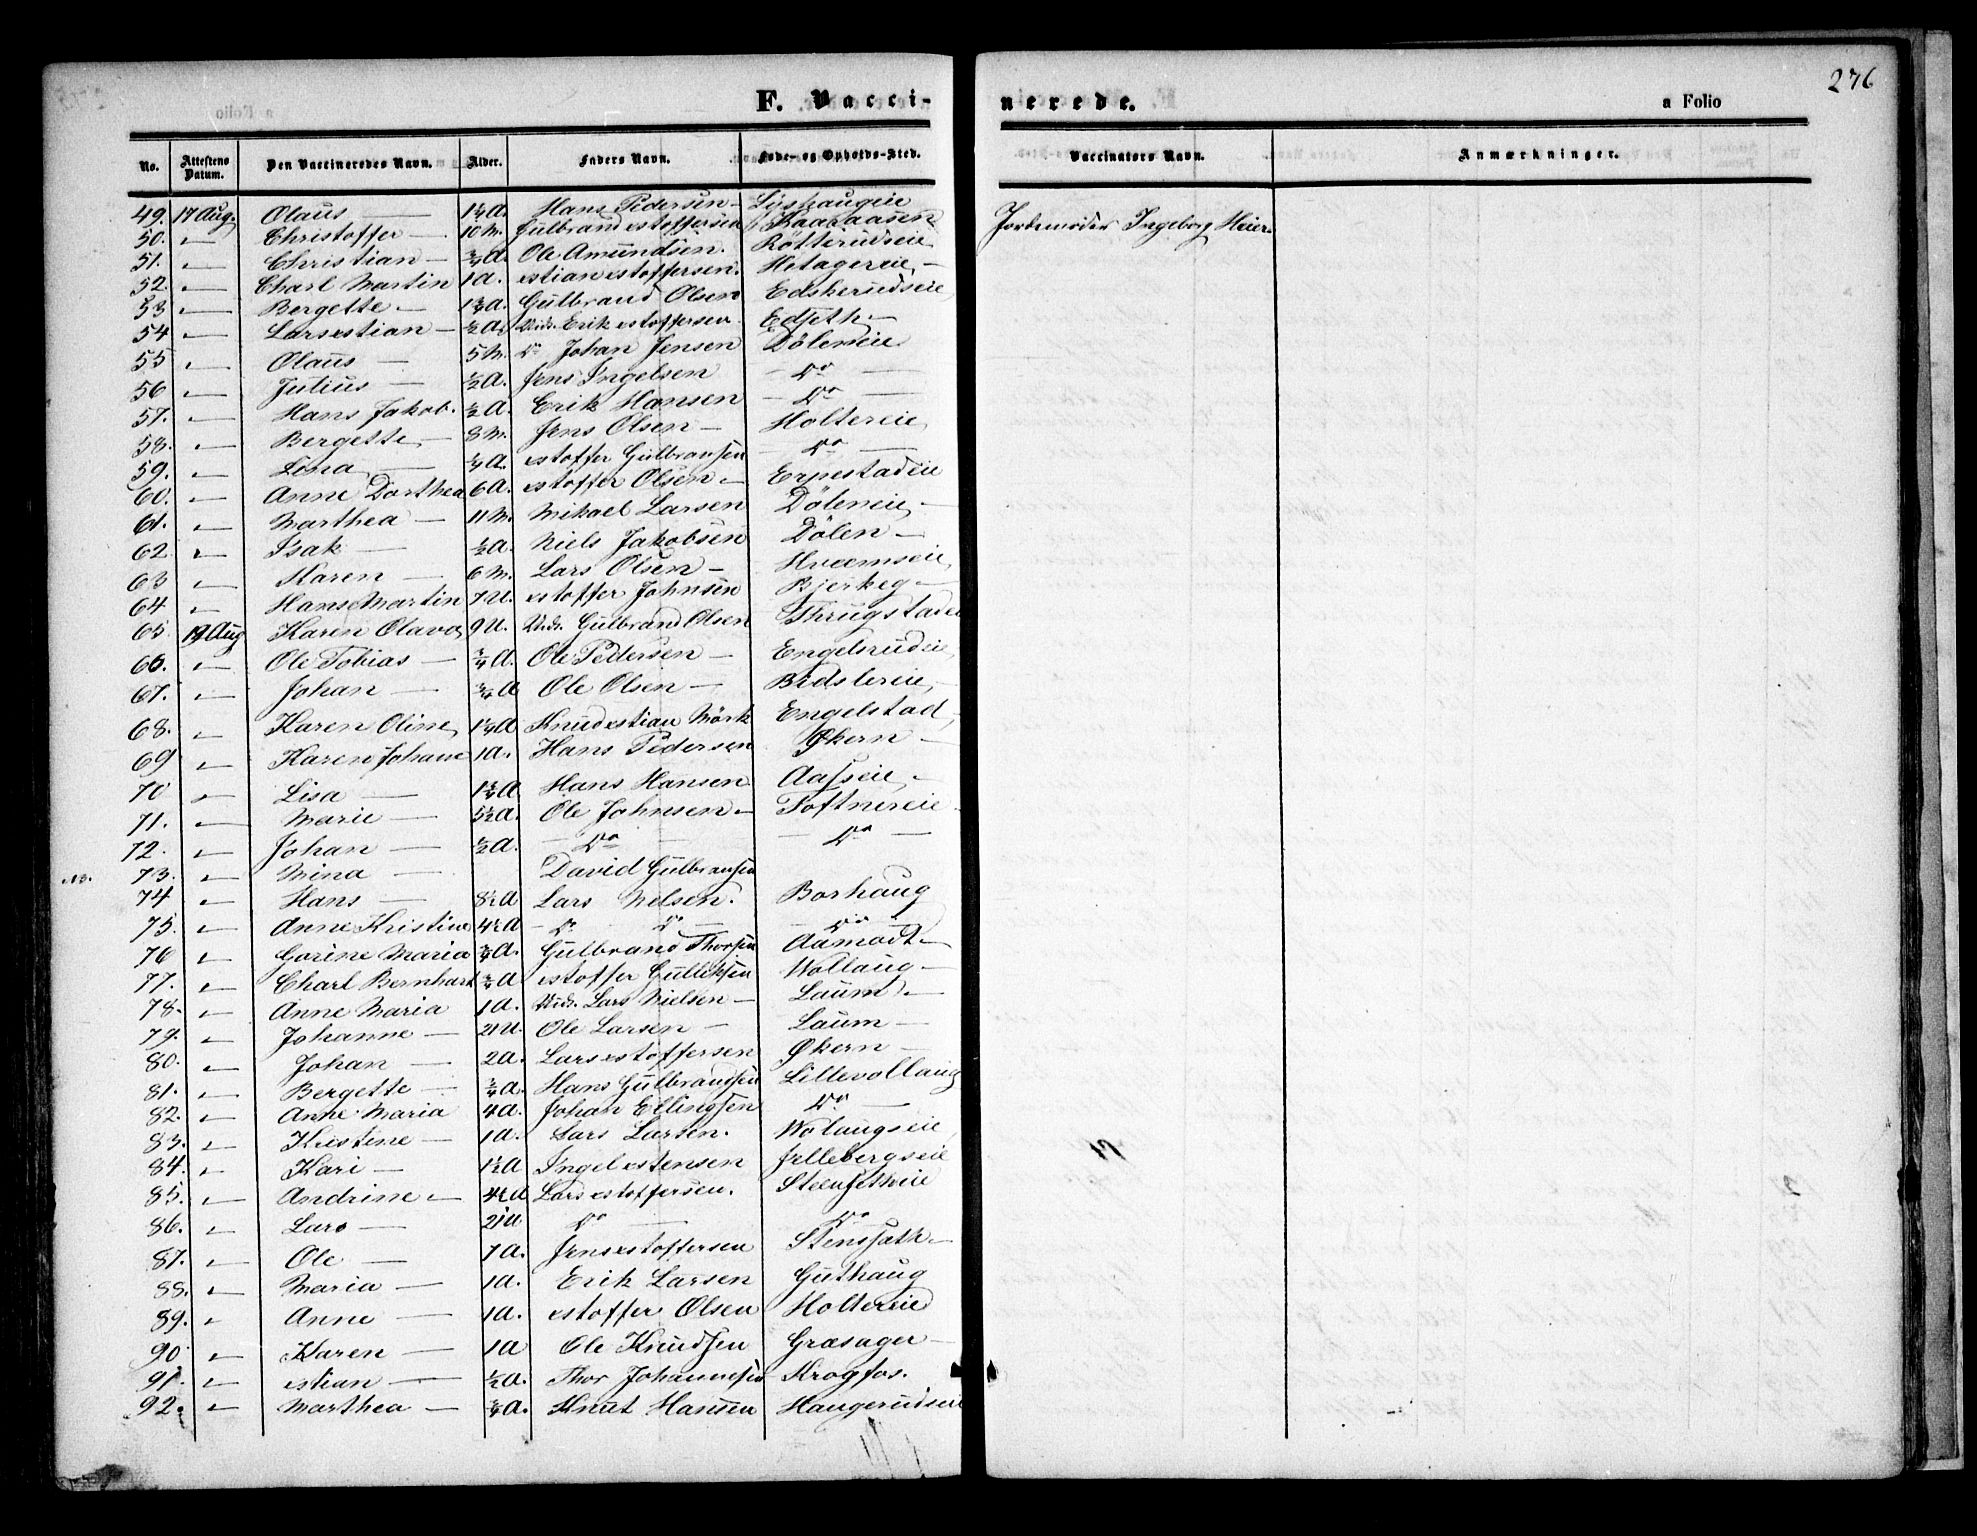 F. Vacci-
No. Attestens Datum. Den Vaccineredes Navn. Alder. Faders Navn. Føde- og Opholds-Sted.
49. 17 Aug. Olaus — 1¼ A. Hans Pedersen —
50. — Christoffer — 10 M. Gulbrand estoffersen
51. — Christian — ¾ A. Ole Amundsen. Rötterudseie
52. — Charl Martin 1 A. estian estoffersen. Hetagereie —
53 — Bergette — 1¾ A. Gulbrand Olsen Edskerudseie
54 — Larsestian — ½ A. Erik estoffersen Edseth —
55 — Olaus — 5 M. Do Johan Jensen Döleneie
56 — Julius — ½ A. Jens Ingelsen — Do —
57. — Hans Jakob. ½ A. Erik Hansen — Do —
58. — Bergette — 8 M. Jens Olsen — Holtereie
59. — Lina — ¼ A. estoffer Gulbransen — Do —
60. — Anne Dorthea 6 A. estoffer Olsen — Erpestadeie
61. — Marthea — 11 M. Mikael Larsen Döleneie —
62. — Isak — ½ A. Niels Jakobsen Dölen —
63 — Karen — 6 M. Lars Olsen — Hvamseie
64 — Hans Martin 7 U. estoffer Johnsen Bjerkeg —
65 19 Aug Karen Olava 9 U. Gulbrand Olsen Thrugstadei
66. — Ole Tobias — ¾ A. Ole Pedersen — Engelsrudeie
67. — Johan — ¾ A Ole Olsen — Bidslereie —
68. — Karen Oline 1¼ A Knudestian Mörk Engelstad —
69 — Karen Johane 1 A. Hans Pedersen Økern —
70 — Lisa — 1¾ A. Hans Hansen Aasseie —
71. — Marie — 5½ A. Ole Johnsen — Toftnereie
72. — Johan — ½ A. — Do — — Do —
NB. 73. — Mina — David Gulbransen
74 — Hans — 8½ A Lars Nelsen. Borhaug
75. — Anne Kristine 4½ A — Do Do — — Do —
76 — Gorine Maria ¾ A. Gulbrand Thorsen Aamodt —
77. — Charl Bernhart ¾ A estoffer Gulliksen Wollaug —
78. — Anne Maria 1 A. Lars Nielsen — Laum —
79. — Johanne — 21 U. Ole Larsen — Laum —
80. — Johan — 2 A. Lars estoffersen Økern —
81. — Bergette — ¾ A. Hans Gulbrandsen Lillevollaug
82. — Anne Maria 4 A. Johan Ellingsen Do —
83. — Kristine — 1 A. Lars Larsen. Wolaugseie
84. — Kari — 1½ A Ingel estensen Jellebergseie
85. — Andrine — 4½ A Lars estoffersen. Steensetheie
86. — Lars — 21 U Do — Do —
87. — Ole — 7 A. Jens estoffersen Stensæth —
88. — Maria — 1 A. Erik Larsen Guthaug
89. — Anne — 1 A. estoffer Olsen Holtereie
90 — Karen — 1 A Ole Knudsen Græsager —
91. — estian — ½ A. Thor Johannesen Krogfos.
92. — Marthea — ¾ A. Knut Hansen Haugerudseie
276
nerede. a Folio
Vaccinators Navn. Anmærkninger.
Jordemoder Ingeborg Heier.